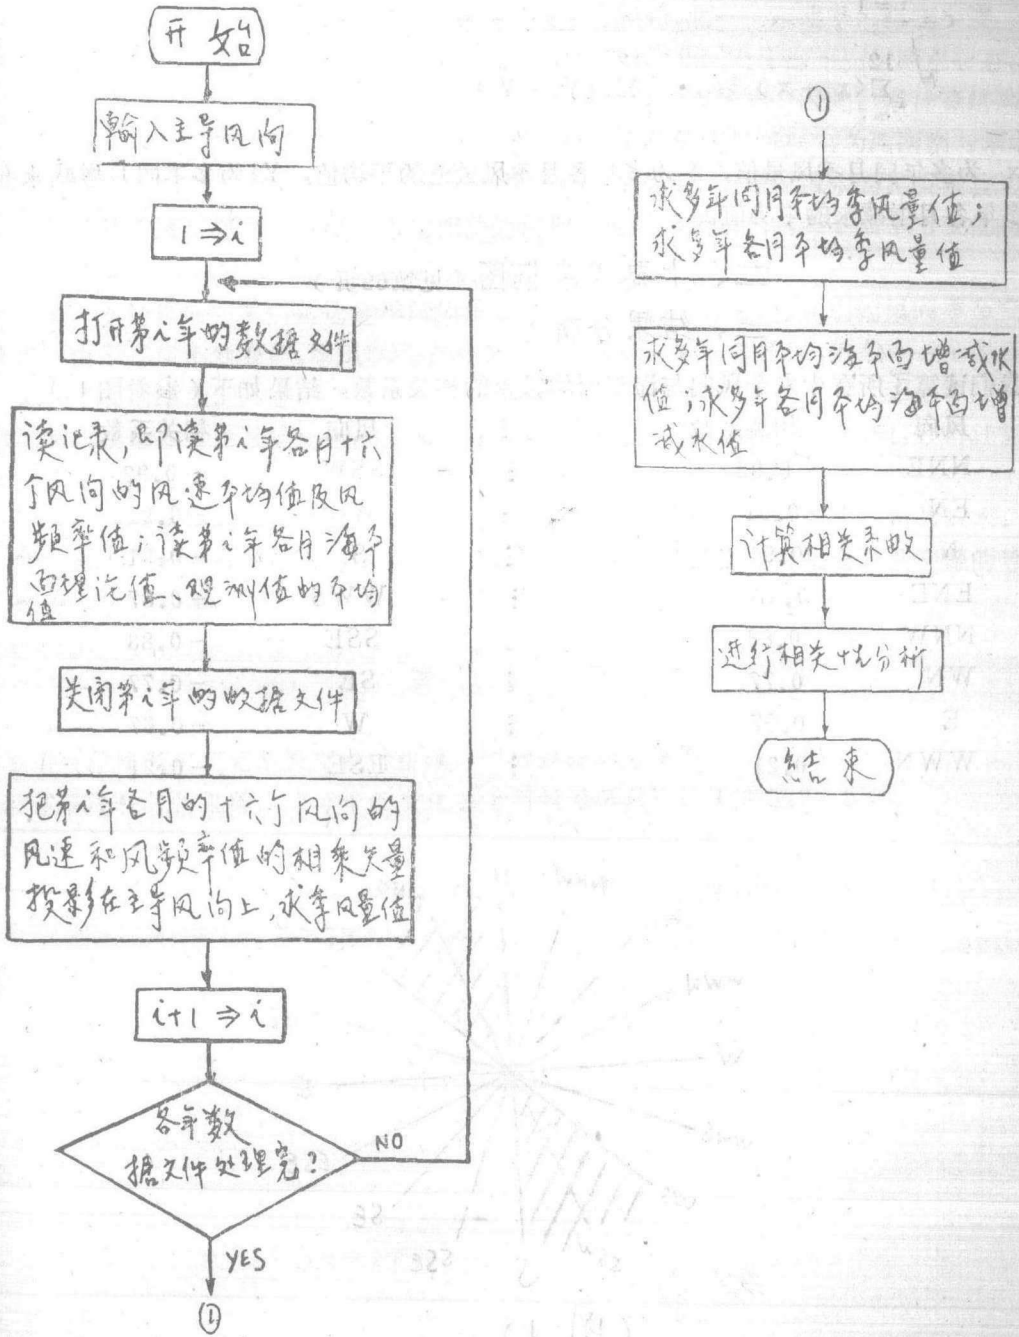 开始
输入主导风向
1⇒i
打开第i年的数据文件
读记录,即读第i年各月十六
个风向的风速平均值及风
频率值;读第i年各月海平
面理论值、观测值的平均
值
关闭第i年的数据文件
把第i年各月的十六个风向的
风速和风频率值的相乘矢量
投影在主导风向上,求季风量值
i+1⇒i
各年数
据文件处理完?
NO
YES
①
①
求多年同月平均季风量值;
求多年各月平均季风量值
求多年同月平均海平面增减水
值;求多年各月平均海平面增
减水值
计算相关系数
进行相关性分析
结束